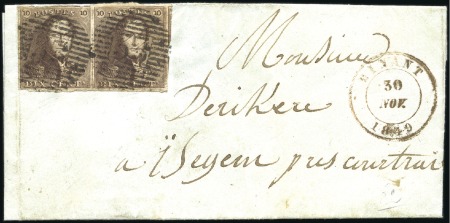 10 POSTES 10 10 POSTES 10
DIX CENT. DIX CENT.
Monsieur
DINANT
30
NOV.
1849
Derikere
à Isegem pres courtrai